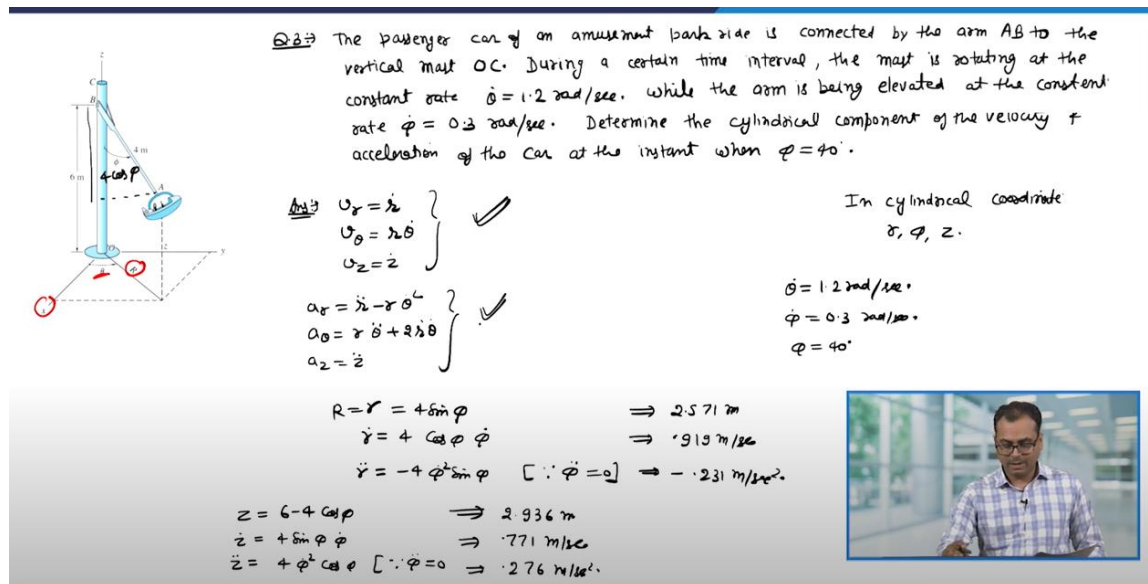 Q.3⇒ The passenger car of an amusement park ride is connected by the arm AB to the
vertical mast OC. During a certain time interval, the mast is rotating at the
constant rate θ̇ = 1.2 rad/sec. while the arm is being elevated at the constent
rate φ̇ = 0.3 rad/sec. Determine the cylindrical component of the velocity &
acceleration of the car at the instant when φ = 40°.
z
C
B
φ
4 m
6 m
4 cos φ
A
O
z
y
θ
Ans⇒ v_r = ṙ
v_θ = rθ̇
v_z = ż
In cylindrical coordinate
r, φ, z.
a_r = r̈ - r θ̇²
a_θ = r θ̈ + 2ṙθ̇
a_z = z̈
θ̇ = 1.2 rad/sec.
φ̇ = 0.3 rad/sec.
φ = 40°
R = r = 4 sin φ ⇒ 2.571 m
ṙ = 4 cos φ φ̇ ⇒ .919 m/sec
r̈ = -4 φ̇² sin φ [∵ φ̈ = 0] ⇒ - .231 m/sec².
z = 6-4 cos φ ⇒ 2.936 m
ż = 4 sin φ φ̇ ⇒ .771 m/sec
z̈ = 4 φ̇² cos φ [∵ φ̈ = 0 ⇒ .276 m/sec².